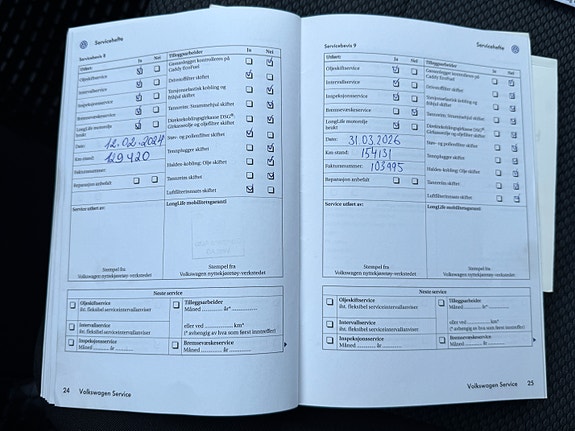 Servicehefte
Servicebevis 8
Utført: Ja Nei
Oljeskiftservice
Intervallservice
Inspeksjonsservice
Bremsevæskeservice
LongLife motorolje
brukt
Dato: 12.02.2024
Km-stand: 129420
Fakturanummer:
Reparasjon anbefalt
Tilleggsarbeider Ja Nei
Gassanlegget kontrolleres på
Caddy EcoFuel
Drivstoffilter skiftet
Tannrem: Strammerhjul skiftet
Dobbeltkoblingsgirkasse DSG®:
Girkasseolje og oljefilter skiftet
Støv- og pollenfilter skiftet
Tennplugger skiftet
Haldex-kobling: Olje skiftet
Tannrem skiftet
Luftfilterinnsats skiftet
Service utført av:
LongLife mobilitetsgaranti
Stempel fra
Volkswagen nyttekjøretøy-verkstedet
Stempel fra
Volkswagen nyttekjøretøy-verkstedet
Neste service
Oljeskiftservice
Ift. fleksibel serviceintervallanviser
Intervallservice
Ift. fleksibel serviceintervallanviser
Inspeksjonsservice
Måned år
Tilleggsarbeider
Måned år*
eller ved km*
(* avhengig av hva som først inntreffer)
Bremsevæskeservice
Måned år
24 Volkswagen Service
Servicehefte
Servicebevis 9
Utført: Ja Nei
Oljeskiftservice
Intervallservice
Inspeksjonsservice
Bremsevæskeservice
LongLife motorolje
brukt
Dato: 31.03.2026
Km-stand: 154131
Fakturanummer: 103995
Reparasjon anbefalt
Tilleggsarbeider Ja Nei
Gassanlegget kontrolleres på
Caddy EcoFuel
Drivstoffilter skiftet
Tannrem: Strammerhjul skiftet
Dobbeltkoblingsgirkasse DSG®:
Girkasseolje og oljefilter skiftet
Støv- og pollenfilter skiftet
Tennplugger skiftet
Haldex-kobling: Olje skiftet
Tannrem skiftet
Luftfilterinnsats skiftet
Service utført av:
LongLife mobilitetsgaranti
Stempel fra
Volkswagen nyttekjøretøy-verkstedet
Stempel fra
Volkswagen nyttekjøretøy-verkstedet
Neste service
Oljeskiftservice
Ift. fleksibel serviceintervallanviser
Intervallservice
Ift. fleksibel serviceintervallanviser
Inspeksjonsservice
Måned år
Tilleggsarbeider
Måned år*
eller ved km*
(* avhengig av hva som først inntreffer)
Bremsevæskeservice
Måned år
Volkswagen Service 25